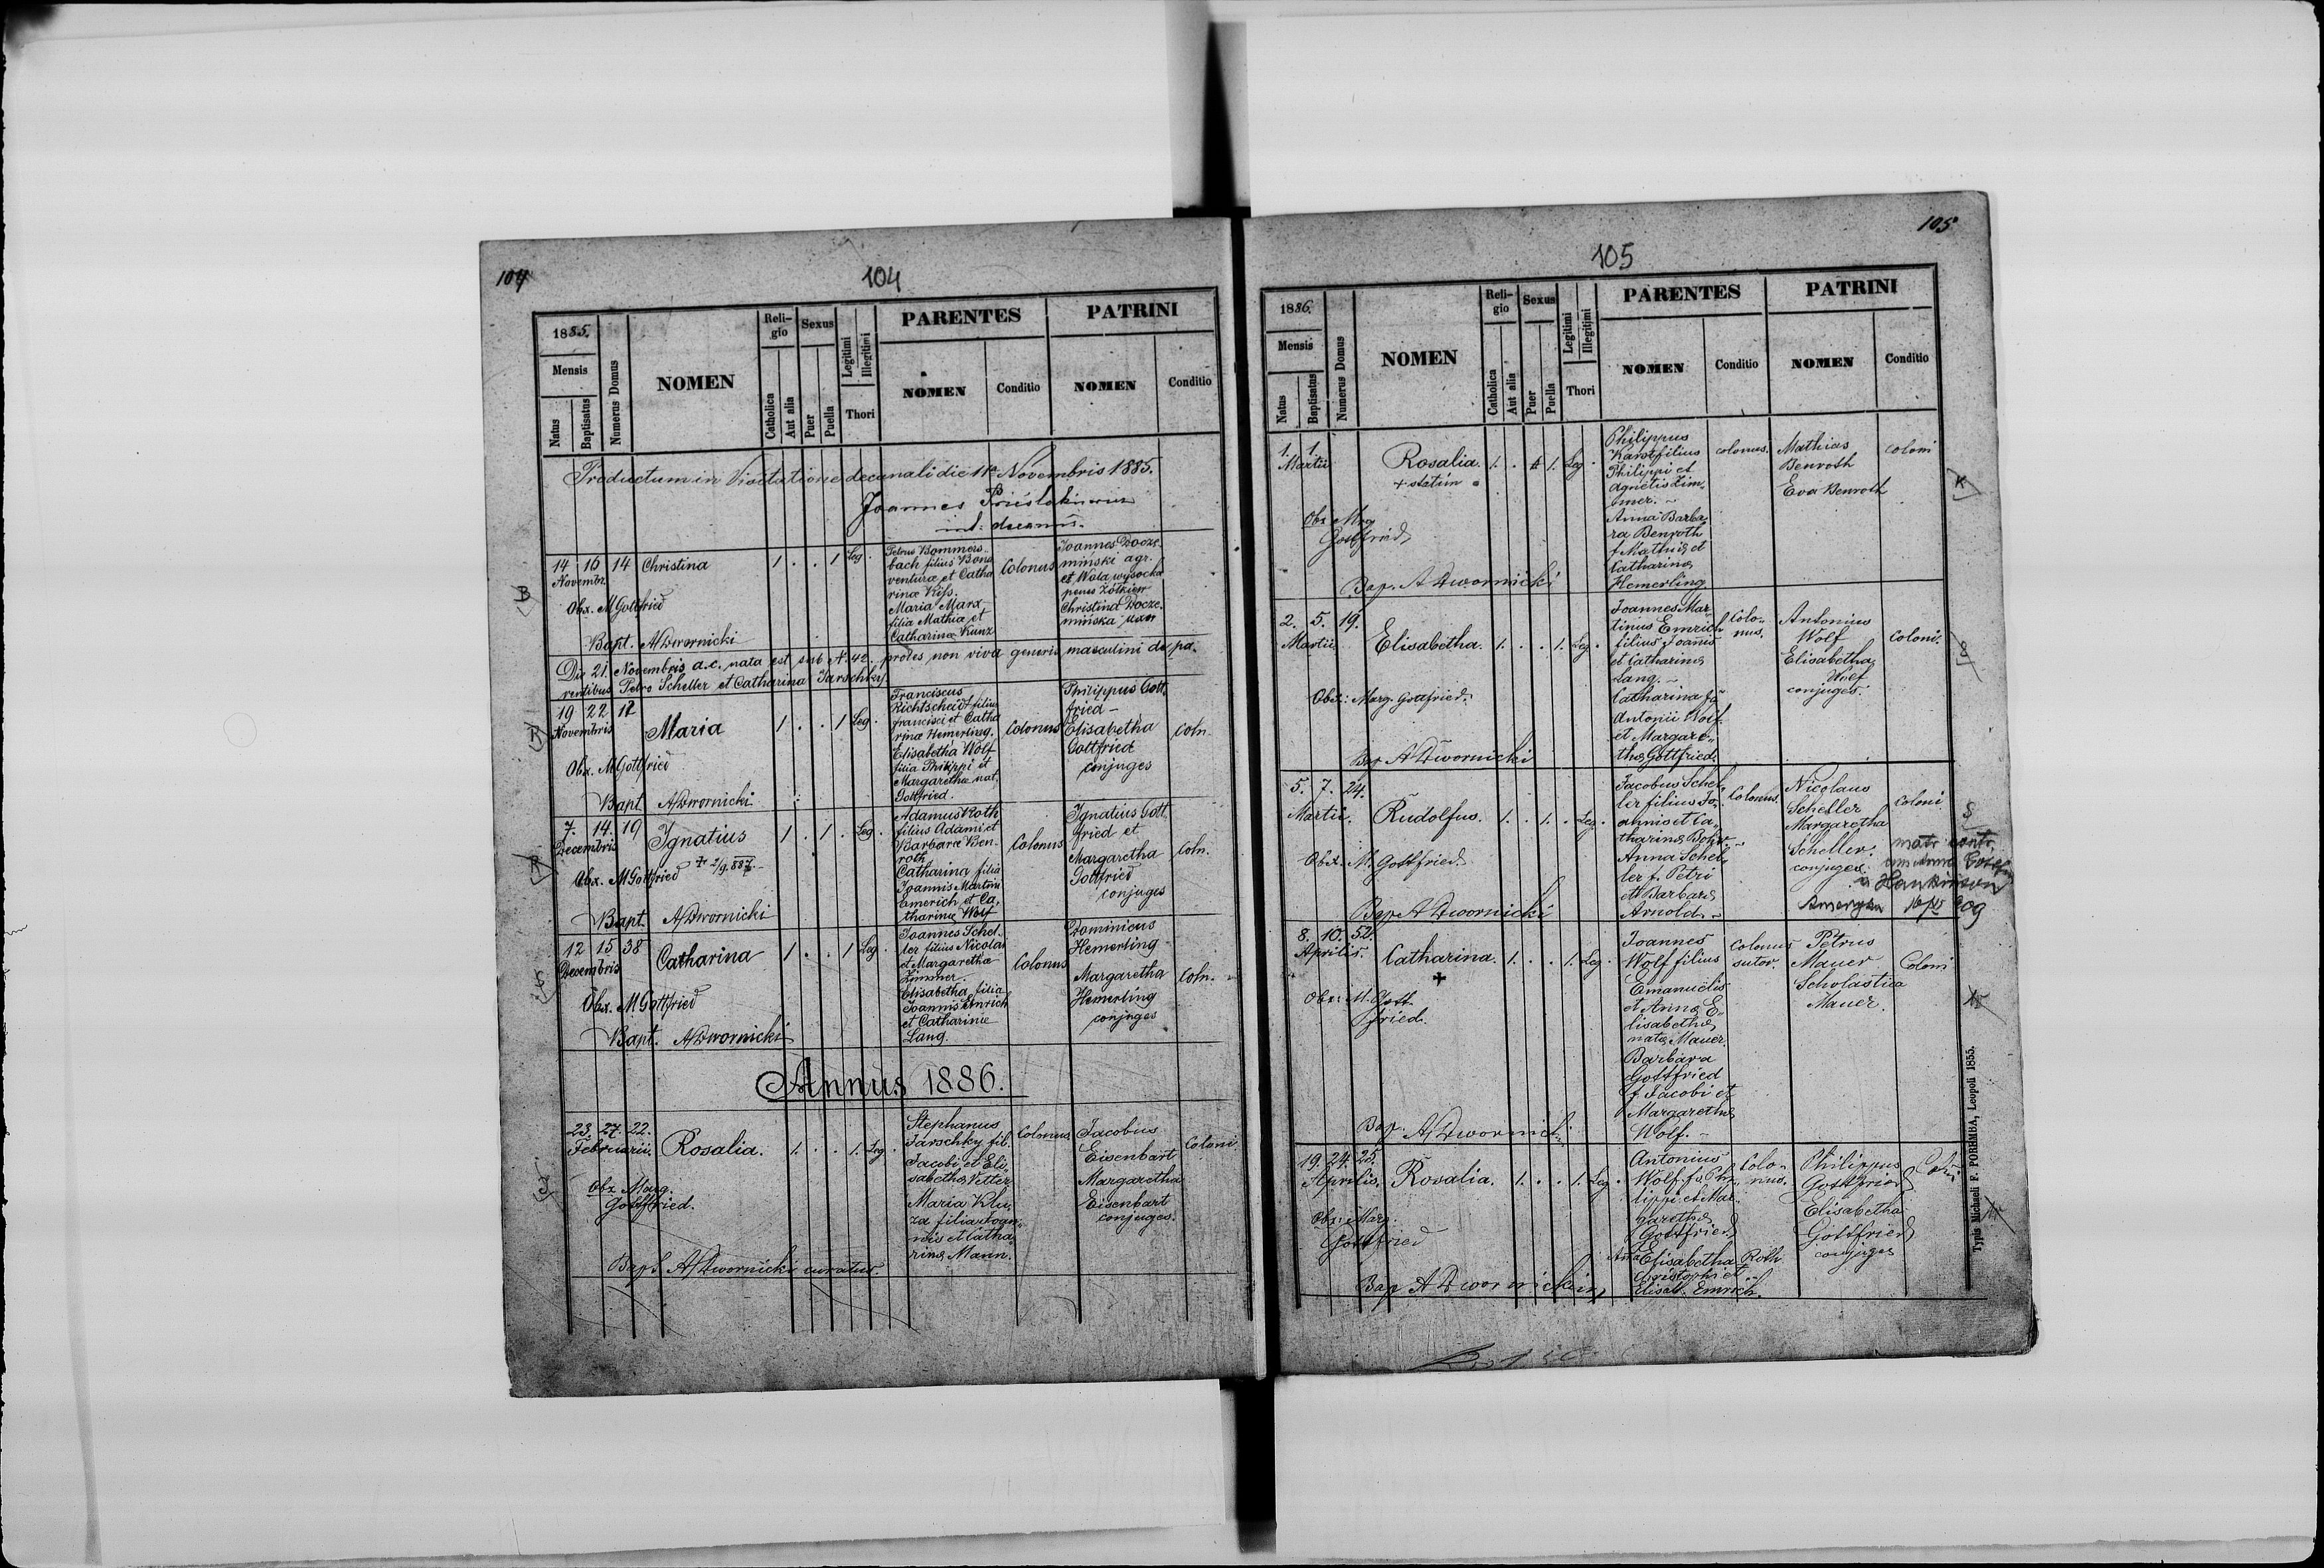 104
104
1885.
Mensis
Natus
Baptisatus
Numerus Domus
NOMEN
Religio
Catholica
Aut alia
Sexus
Puer
Puella
Legitimi
Illegitimi
Thori
PARENTES
NOMEN
Conditio
PATRINI
NOMEN
Conditio
Productum in Visitatione decanali die 11a Novembris 1885.
Joannes
decanus.
14 16 14 Christina 1 . . 1 Leg.
Novembr.
Obx. M Gottfried
Bapt. A/Dwornicki
Petrus Bommers-
bach filius Bona
ventura et Catha
rinæ Kiss.
Maria Marx
filia Mathiæ et
Catharina Kunz
Colonus
Joannes Docze-
minski agr.
et Wola wysocka
penes Zołkiew
Christina Docze-
minska uxor
Die 21. Novembris a.c. nata est sub N. 42. proles non viva generis masculini de pa-
rentibus Petro Scheller et Catharina Jarschky.
19 22 17
Novembris
Maria 1 . . 1 Leg.
Obx. M Gottfried
Bapt. A/Dwornicki
Franciscus
Richtscheidt filius
Francisci et Catha
rinæ Hemerling.
Elisabetha Wolf
filia Philippi et
Margarethæ nat.
Gottfried.
Colonus
Philippus Gott
fried -
Elisabetha
Gottfried
conjuges
Coln.
7. 14. 19
Decembris
Ignatius 1 . 1 . Leg.
Obx. M Gottfried + 2/9. 887
Bapt. A/Dwornicki
Adamus Roth
filius Adami et
Barbaræ Ben-
roth
Catharina filia
Joannis Martini
Emerich et Ca-
tharina Wolf
Colonus
Ignatius Gott
fried et
Margaretha
Gottfried
conjuges
Coln.
12 15 38
Decembris
Catharina 1 . . 1 Leg.
Obx. M. Gottfried
Bapt. A/Dwornicki
Joannes Schel-
ler filius Nicolai
et Margaretha
Zimmer.
Elisabetha filia
Joannis Emrich
et Catharinæ
Lang.
Colonus
Dominicus
Hemerling
Margaretha
Hemerling
conjuges
Coln.
Annus 1886.
23. 27. 22.
Februarii.
Rosalia. 1. . . 1. Leg.
Obx Marg.
Gottfried.
Bapt. A/Dwornicki curatus.
Stephanus
Jarschky fil.
Jacobi et Eli-
sabetha Vetter
Maria Klu-
za filia Joan-
nis et Catha-
rina Mann.
Colonus
Jacobus
Eisenbart
Margaretha
Eisenbart
conjuges.
Coloni
105
105
1886.
Mensis
Natus
Baptisatus
Numerus Domus
NOMEN
Religio
Catholica
Aut alia
Sexus
Puer
Puella
Legitimi
Illegitimi
Thori
PARENTES
NOMEN
Conditio
PATRINI
NOMEN
Conditio
1. 1.
Martii
Rosalia. 1. . 1. Leg.
+ statim
Obx Marg
Gottfried
Bap. A Dwornicki
Philippus
Karst filius
Philippi et
Agnetis Zim-
mer. -
Anna Barba-
ra Benroth
f Mathiæ et
Catharina
Hemerling
colonus.
Mathias
Benroth
Eva Benroth
coloni
K
2. 5. 19.
Martii
Elisabetha. 1. . . 1. Leg.
Obx: Marg. Gottfried.
Bap A Dwornicki
Joannes Mar-
tinus Emrich
filius Joannis
et Catharina
Lang. -
Catharina fa
Antonii Wolf
et Margare-
tha Gottfried.
Colo-
nus.
Antonius
Wolf
Elisabetha
Wolf
conjuges.
Coloni.
5. 7. 24.
Martii.
Rudolfus. 1. . 1. . Leg.
Obx. M. Gottfried
Bap A Dwornicki
Jacobus Schel-
ler filius Jo-
annis et Ca-
tharina
Anna Schel-
ler f. Petri
et Barbara
Arnold -
Colonus.
Nicolaus
Scheller
Margaretha
Scheller.
conjuges.
Coloni
S
matr contr
cum Anna
Hankinson
Ameryka 909
8. 10. 52.
Aprilis.
Catharina. 1. . . 1. Leg.
+
Obx: M. Gott
fried.
Bap. A/Dwornicki
Joannes
Wolf filius
Emanuelis
et Anna E-
lisabetha
nata Mauer.
Barbara
Gottfried
f Jacobi et
Margaretha
Wolf. -
Colonus
sutor.
Petrus
Mauer
Scholastica
Mauer.
Coloni
19. 24. 25.
Aprilis.
Rosalia. 1. . . 1. Leg.
Obx: Marg.
Gottfried
Bap A Dwornicki
Antonius
Wolf fs Phi-
lippi et Mar-
garetha
Gottfried
Anna Elisabetha Roth
Christophi et
Elisab. Emrich.
Colo-
nus.
Philippus
Gottfried
Elisabetha
Gottfried
conjuges
Typis Michaeli F. POREMBA, Leopoli 1855.